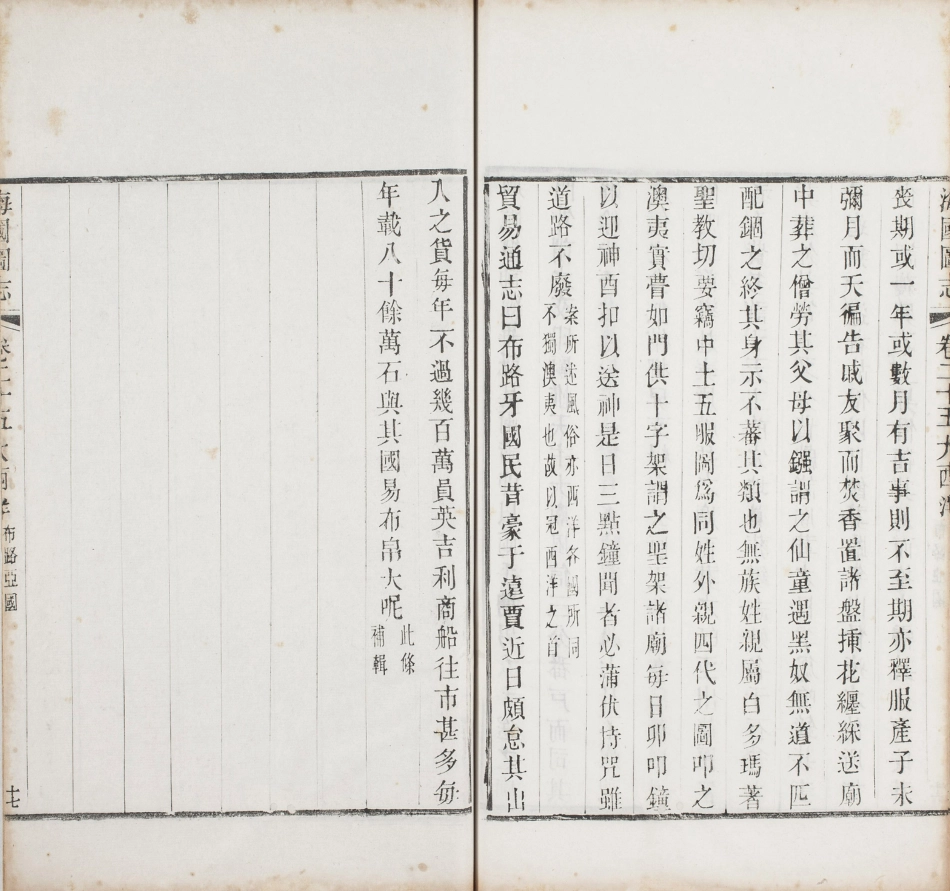 海國圖志 卷二十五大西洋
喪期或一年或數月有吉事則不至期亦釋服產子未
彌月而夭徧告戚友聚而焚香置諸盤揷花纒綵送廟
中葬之僧勞其父母以鏹謂之仙童遇黑奴無道不匹
配錮之終其身示不蕃其類也無族姓親屬白多瑪著
聖教切要竊中土五服圖爲同姓外親四代之圖叩之
澳夷實瞢如門供十字架謂之聖架諸廟每日卯叩鐘
以迎神酉扣以送神是日三點鐘聞者必蒲伏持咒雖
道路不廢 案所述風俗亦西洋各國所同
不獨澳夷也故以冠西洋之首
貿易通志曰布路牙國民昔豪于遠賈近日頗怠其出
入之貨每年不過幾百萬員英吉利商船往市甚多每
年載八十餘萬石與其國易布帛大呢 此條
補輯
海國圖志 卷二十五大西洋 布路亞國 十七